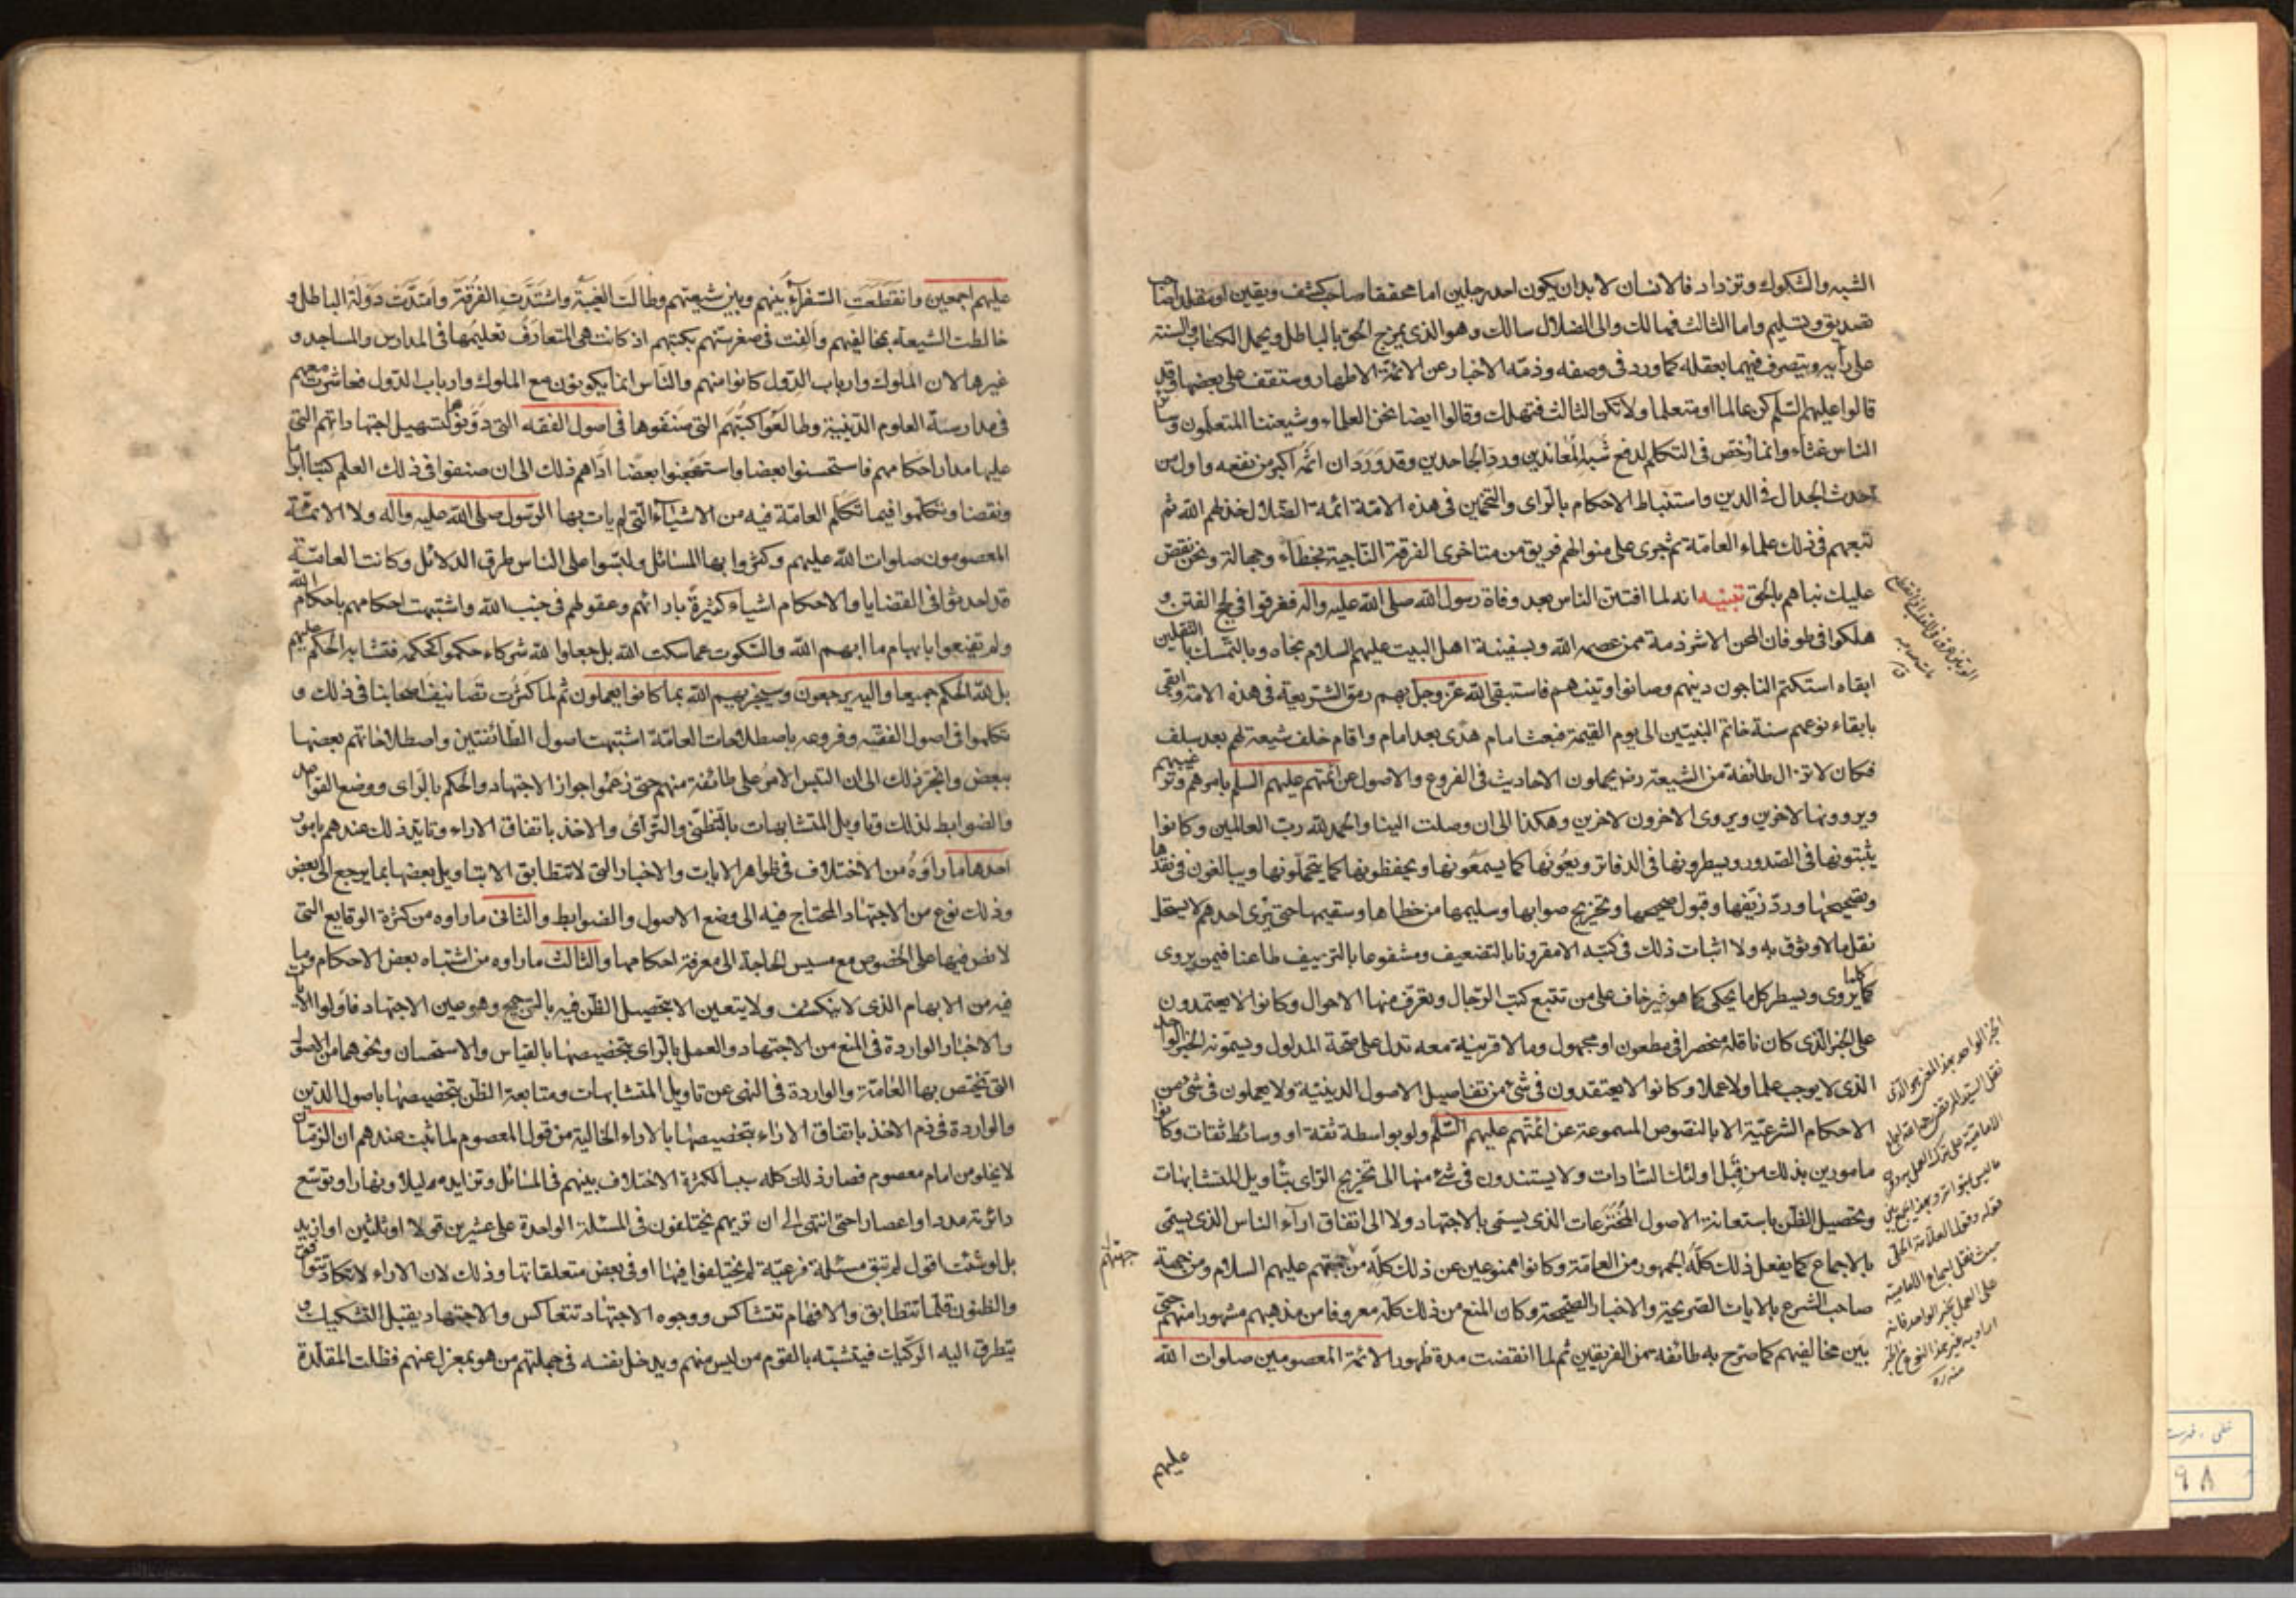 الشبه والشكوك وتزداد فالانسان لابد ان يكون احد رجلين اما محققا صاحب كشف ويقين او مقلدا صاحب
تصديق وتسليم واما الثالث فهالك والى الضلال سالك وهو الذى يمزج الحق بالباطل ويحمل الكتاب والسنة
على رأيه ويتصرف فيهما بعقله كما ورد فى وصفه وذمّه الاخبار عن الائمة الاطهار وستقف على بعضها وقد
قالوا عليهم السّلم كن عالما او متعلما ولا تكن الثالث فتهلك وقالوا ايضا نحن العلماء وشيعتنا المتعلمون وسائر
الناس غثاء وانما رخّص فى التكلم لدفع شبه المعاندين ورد الجاحدين وقد ورد ان اثمه اكبر من نفعه واول من
احدث الجدال فى الدين واستنباط الاحكام بالراى والتخمين فى هذه الامة ائمة الضلال خذلهم الله ثم
تبعهم فى ذلك علماء العامة ثم جرى على منوالهم فريق من متاخرى الفرقة الناجية بخطاء وجهالة ونحن نقص
عليك نباهم بالحق تنبيه انه لما افتتن الناس بعد وفاة رسول الله صلى الله عليه واله فغرقوا فى لجج الفتن و
هلكوا فى طوفان المحن الا شرذمة ممن عصمه الله وبسفينة اهل البيت عليهم السلام نجاه وبالتمسك بالثقلين
ابقاه استكتم الناجون دينهم وصانوا وتينهم فاستبقى الله عز وجل بهم رمق الشريعة فى هذه الامة وابقى
بابقاء نوعهم سنة خاتم النبيين الى يوم القيمة فبعث امام هدى بعد امام واقام خلف شيعة لهم بعد سلف
فكان لا تزال طائفة من الشيعة رض يحملون الاحاديث فى الفروع والاصول عن ائمتهم عليهم السلم بامرهم وترغيبهم
ويروونها لاخرين ويروى الاخرون لاخرين وهكذا الى ان وصلت الينا والحمد لله رب العالمين وكانوا
يثبتونها فى الصدور ويسطرونها فى الدفاتر ويعونها كما يسمعونها ويحفظونها كما يتحملونها ويبالغون فى نقدها
وتصحيحها وردّ زيّفها وقبول صحيحها وتخريج صوابها وسليمها من خطاها وسقيمها حتى يرى احدهم لا يستحل
نقل ما لا وثوق به ولا اثبات ذلك فى كتبه الا مقرونا بالتضعيف ومشفوعا بالتزييف طاعنا فيمن يروى
كلما يروى ويسطر كل ما يحكى كما هو غير خاف على من تتبع كتب الرجال وتعرف منها الاحوال وكانوا لا يعتمدون
على الخبر الذى كان ناقله منحصرا فى مطعون او مجهول وما لا قرينة معه تدل على صحة المدلول ويسمونه الخبر الواحد
الذى لا يوجب علما ولا عملا وكانوا لا يعتقدون فى شئ من تفاصيل الاصول الدينية ولا يعملون فى شئ من
الاحكام الشرعية الا بالنصوص المسموعة عن ائمتهم عليهم السّلم ولو بواسطة ثقة او وسائط ثقات وكانوا
مامورين بذلك من قبل اولئك السّادات ولا يستندون فى شئ منها الى تخريج الراى بتأويل المتشابهات
وتحصيل الظن باستعانة الاصول المخترعات الذى يسمى بالاجتهاد ولا الى اتفاق اراء الناس الذى يسمى
بالاجماع كما يفعل ذلك كله الجمهور من العامة وكانوا ممنوعين عن ذلك كله من جهتهم عليهم السلام ومن جهة
صاحب الشرع بالايات الصريحة والاخبار الصحيحة وكان المنع من ذلك كله معروفا من مذهبهم مشهورا منهم حتى
بين مخالفيهم كما صرح به طائفة من الفريقين ثم لما انقضت مدة ظهور الائمة المعصومين صلوات الله
عليهم
جهتهم
عليهم اجمعين وانقطعت السّفراء بينهم وبين شيعتهم وطالت الغيبة واشتدّت الفرقة وامتدّت دولة الباطل و
خالطت الشيعة بمخالفيهم والفت فى صغر سنهم بكتبهم اذ كانت هى المتعارف تعليمها فى المدارس والمساجد و
غيرها لان الملوك وارباب الدول كانوا منهم والناس انما يكونون مع الملوك وارباب الدول فعاشرت معهم
فى مدارسة العلوم الدينية وطالعوا كتبهم التى صنفوها فى اصول الفقه التى دوّنوها لتسهيل اجتهاداتهم التى
عليها مدار احكامهم فاستحسنوا بعضا واستهجنوا بعضا ادّاهم ذلك الى ان صنفوا فى ذلك العلم كتبا ابراما
ونقضا وتكلموا فيما تكلم العامة فيه من الاشياء التى لم يات بها الرسول صلى الله عليه واله ولا الائمة
المعصومون صلوات الله عليهم وكثروا بها المسائل ولبّسوا على الناس طرق الدلائل وكانت العامّة
قد احدثوا فى القضايا والاحكام اشياء كثيرة بارائهم وعقولهم فى جنب الله واشتبهت احكامهم باحكام الله
ولم تقنعوا بابهام ما ابهم الله والسكوت عما سكت الله بل جعلوا لله شركاء حكموا كحكمه فتشابه الحكم عليهم
بل لله الحكم جميعا واليه يرجعون وسيجزيهم الله بما كانوا يعملون ثم لما كثرت تصانيف اصحابنا فى ذلك و
تكلموا فى اصول الفقه وفروعه باصطلاحات العامة اشتبهت اصول الطائفتين واصطلاحاتهم بعضها
ببعض وانجرّ ذلك الى ان التبس الامر على طائفة منهم حتى زعموا جواز الاجتهاد والحكم بالراى ووضع القواعد
والضوابط لذلك وتاويل المتشابهات بالتظنّى والتراى والاخذ باتفاق الاراء وتايّد ذلك عندهم بامور
احدها ما راوه من الاختلاف فى ظواهر الايات والاخبار التى لا تتطابق الا بتاويل بعضها بما يرجع الى بعض
وذلك نوع من الاجتهاد المحتاج فيه الى وضع الاصول والضوابط والثانى ما راوه من كثرة الوقايع التى
لا نص فيها على الخصوص مع مسيس الحاجة الى معرفة احكامها والثالث ما راوه من اشتباه بعض الاحكام وما
فيه من الابهام الذى لا ينكشف ولا يتعين الا بتحصيل الظن فيه بالترجيح وهو عين الاجتهاد فاوّلوا الايات
والاخبار الواردة فى المنع من الاجتهاد والعمل بالراى بتخصيصها بالقياس والاستحسان ونحوهما من الاصول
التى تختص بها العامة والواردة فى النهى عن تاويل المتشابهات ومتابعة الظن بتخصيصها باصول الدين
والواردة فى ذم الاخذ باتفاق الاراء بتخصيصها بالاراء الخالية من قول المعصوم لما ثبت عندهم ان الزمان
لا يخلو من امام معصوم فصار ذلك كله سببا لكثرة الاختلاف بينهم فى المسائل وتزايده ليلا ونهارا وتوسّع
دائرته مددا واعصارا حتى انتهى الى ان تريهم يختلفون فى المسئلة الواحدة على عشرين قولا او ثلثين او ازيد
بل لو شئت اقول لم تبق مسئلة فرعية لم يختلفوا فيها او فى بعض متعلقاتها وذلك لان الاراء لا تكاد تتوافق
والظنون قلّما تتطابق والافهام تتشاكس ووجوه الاجتهاد تتعاكس والاجتهاد يقبل التشكيك و
يتطرق اليه الركيك فيتشبّه بالقوم من ليس منهم ويدخل نفسه فى جملتهم من هو بمعزل عنهم فظلت المقلّدة
٩٨